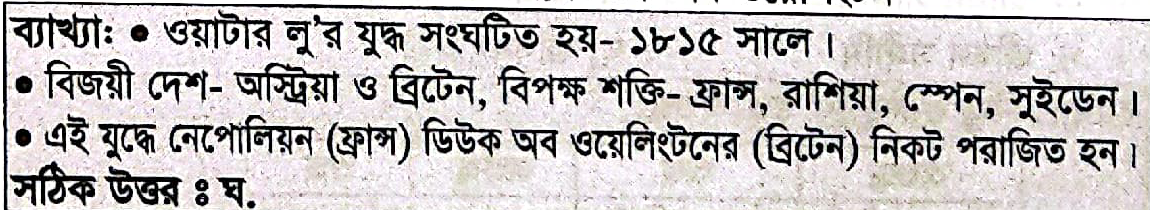 ব্যাখ্যা: ● ওয়াটার লু'র যুদ্ধ সংঘটিত হয়- ১৮১৫ সালে।
● বিজয়ী দেশ- অস্ট্রিয়া ও ব্রিটেন, বিপক্ষ শক্তি- ফ্রান্স, রাশিয়া, স্পেন, সুইডেন।
● এই যুদ্ধে নেপোলিয়ন (ফ্রান্স) ডিউক অব ওয়েলিংটনের (ব্রিটেন) নিকট পরাজিত হন।
সঠিক উত্তর ঃ ঘ.